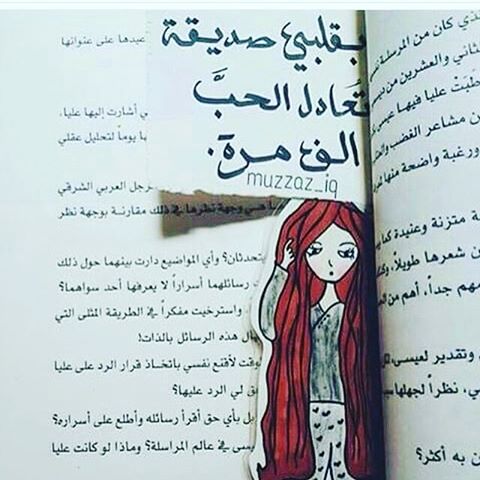 بقلبي صديقة
تعادل الحبَّ
الف مرة.
muzzaz_iq
عيدها على عنوانها
ي أشارت إليها عليا،
يوماً لتحليل عقلي
رجل العربي الشرقي
هي وجهة نظرها في ذلك مقارنة بوجهة نظر
يتحدثان؟ وأي المواضيع دارت بينهما حول ذلك
رسائلهما أسراراً لا يعرفها أحد سواهما؟
، واسترخيت مفكراً في الطريقة المثلى التي
هذه الرسائل بالذات!
لأقنع نفسي باتخاذ قرار الرد على عليا
لي الرد عليها؟
بل بأي حق أقرأ رسائله وأطلع على أسراره؟
في عالم المراسلة؟ وماذا لو كانت عليا
كان من المرسلة
والعشرين من
عليا فيها
من مشاعر الغضب
ورغبة واضحة منها
متزنة وعنيدة كما
شعرها طويلاً،
مهم جداً، أهم من
وتقدير لعيسى،
، نظراً لجهلها
به أكثر؟